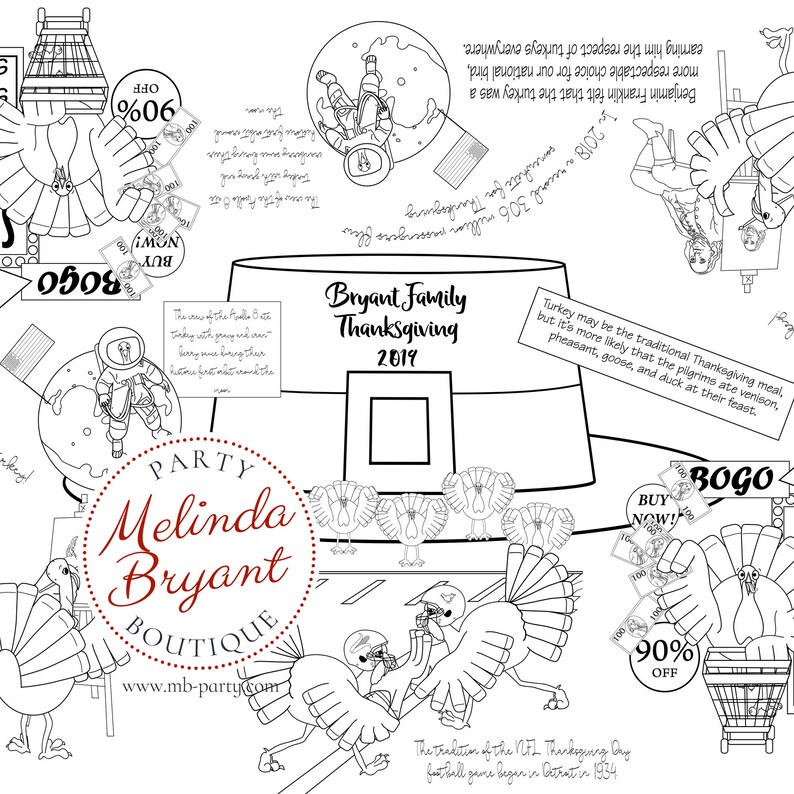 90%
OFF
BUY
NOW!
BOGO
100
100
100
100
100
The crew of the Apollo 8 ate
turkey with gravy and
cranberry sauce during their
historic first orbit around
the moon.
Benjamin Franklin felt that the turkey was a
more respectable choice for our national bird,
earning him the respect of turkeys everywhere.
In 2018 a record 30.6 million passengers flew
somewhere for Thanksgiving
Bryant Family
Thanksgiving
2019
The crew of the Apollo 8 ate
turkey with gravy and cran-
berry sauce during their
historic first orbit around the
moon.
Turkey may be the traditional Thanksgiving meal,
but it's more likely that the pilgrims ate venison,
pheasant, goose, and duck at their feast.
BOGO
BUY
NOW!
100
100
100
100
100
90%
OFF
PARTY
Melinda
Bryant
BOUTIQUE
www.mb-party.com
The tradition of the NFL Thanksgiving Day
football game began in Detroit in 1934.